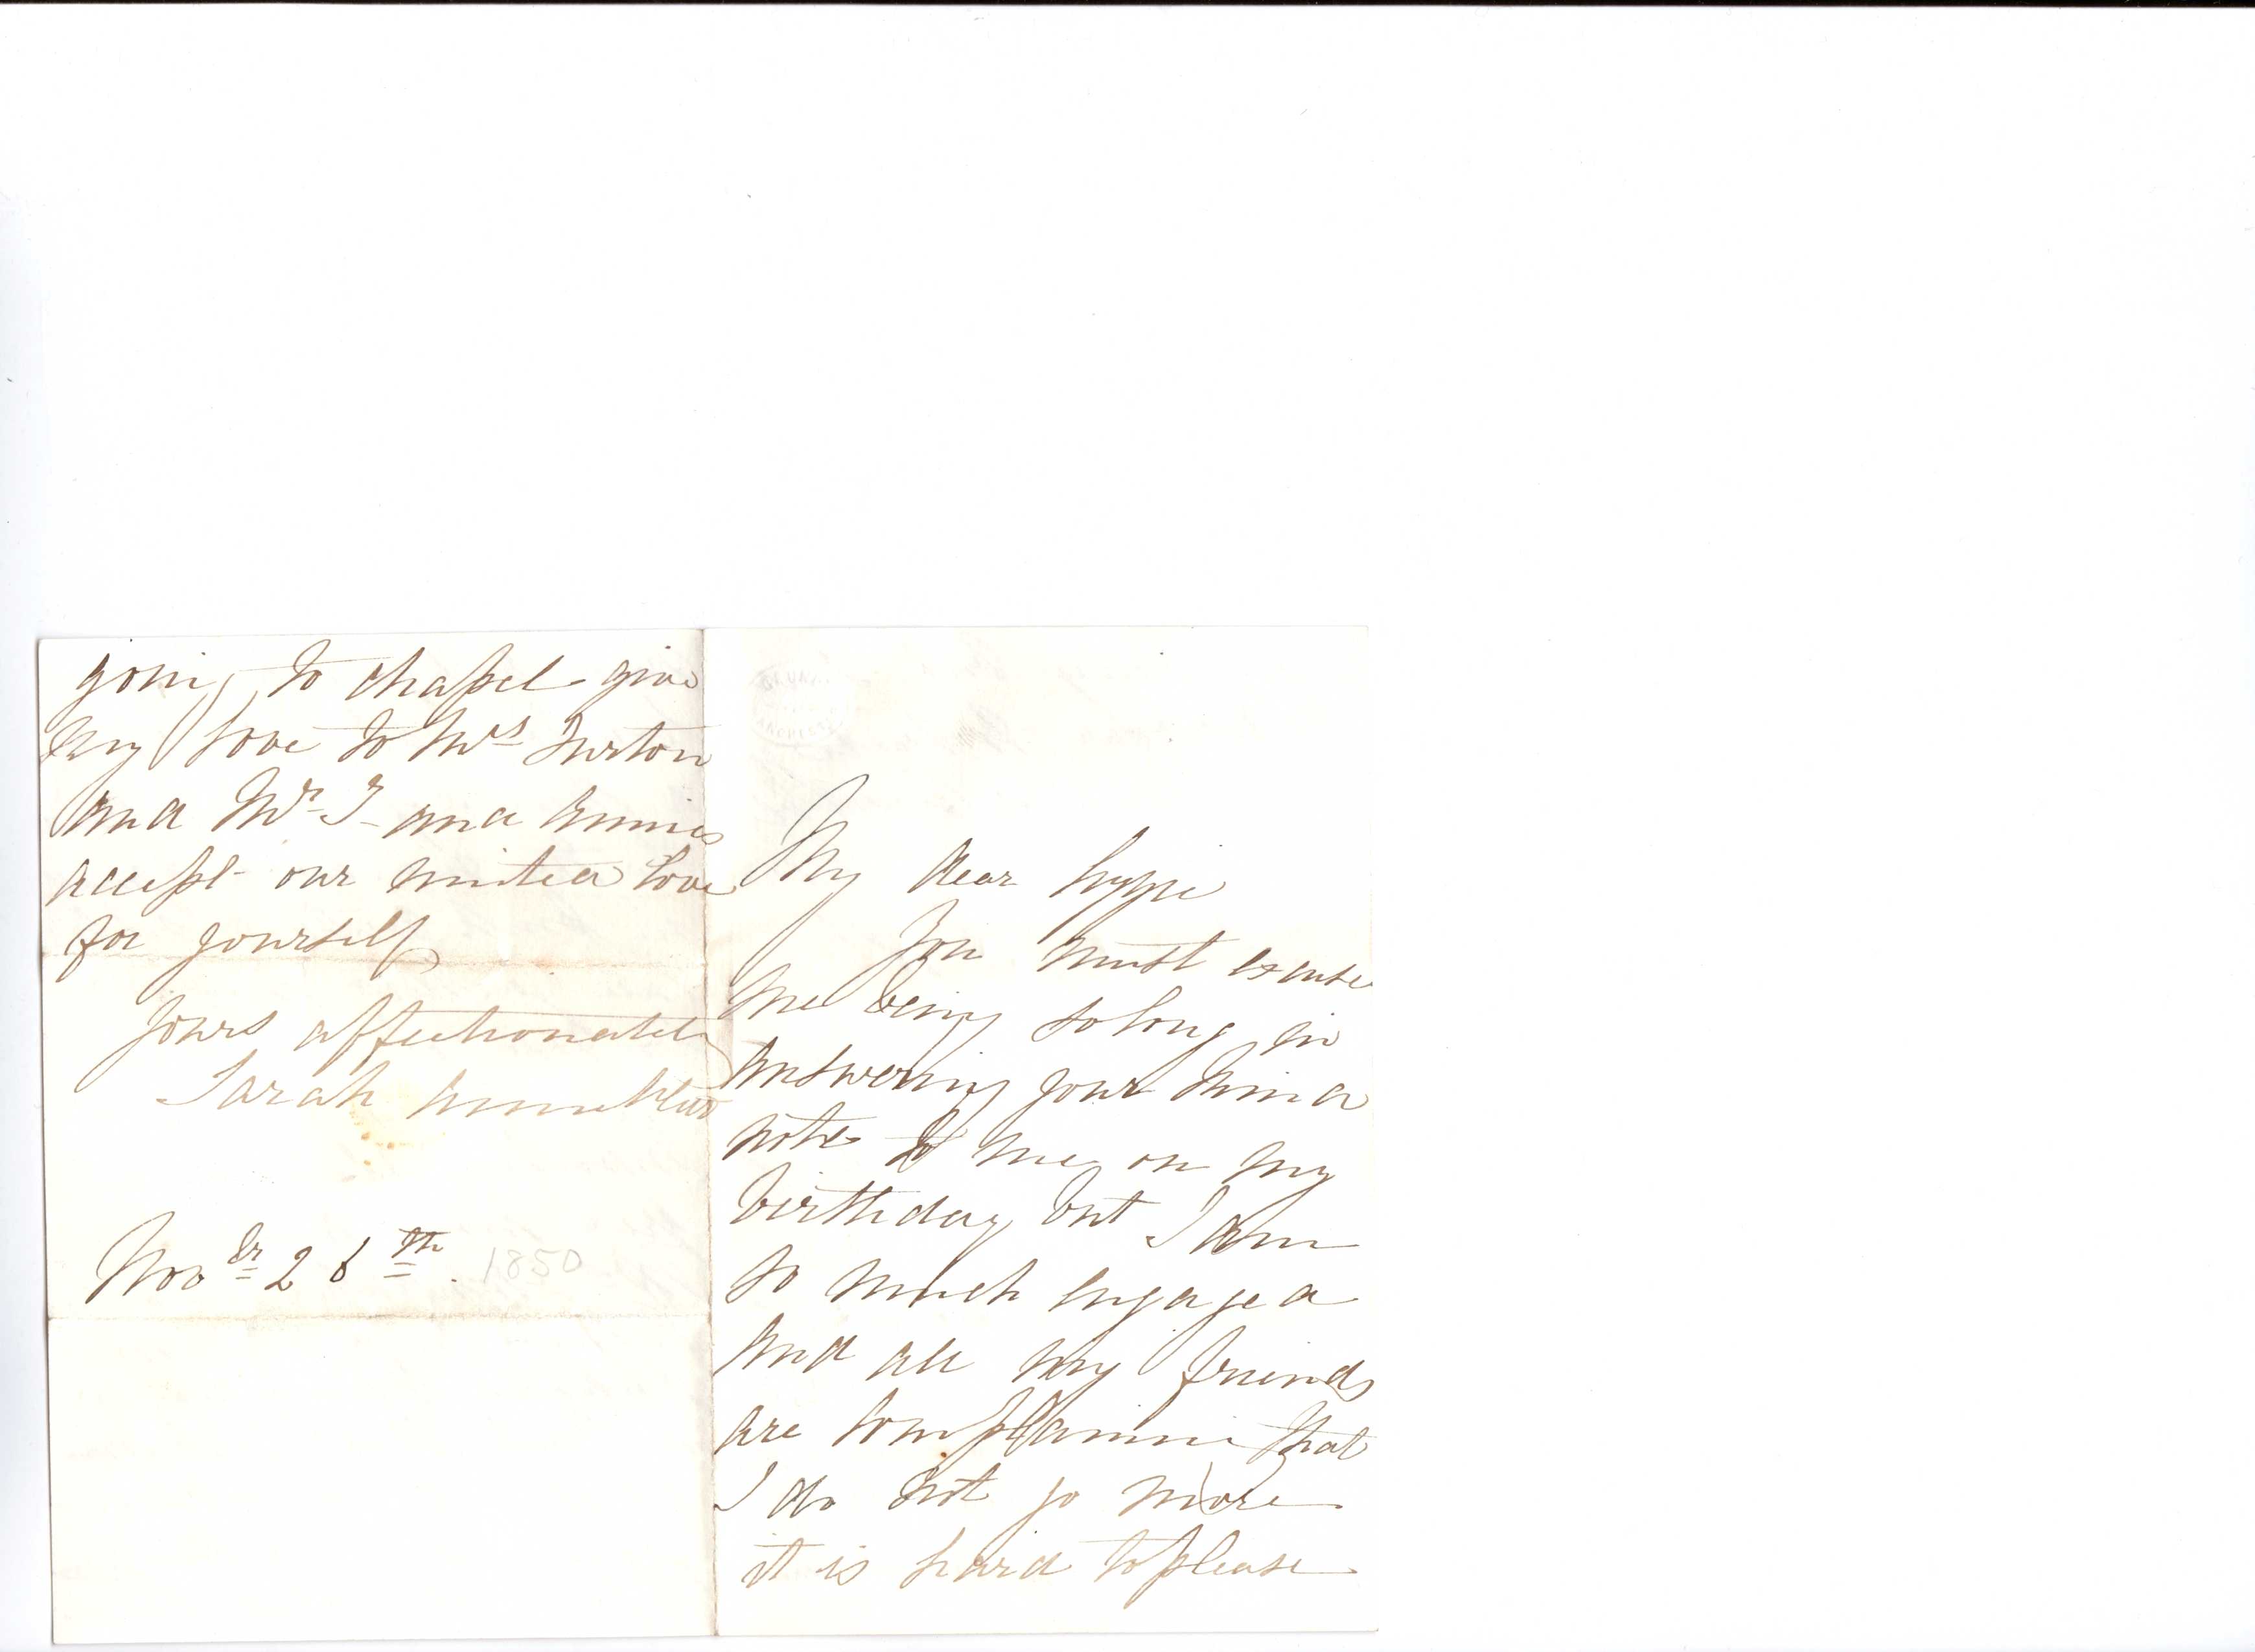 My dear
You must excuse
me being so long in
answering your kind
note to me on my
birthday but I am
so much engaged
and all my friends
are complaining that
I do not go more
it is hard to please
going to chapel give
my love to Mrs
and Mr and
accept our united love
for yourself
yours affectionately
Sarah
Novbr 28th. 1850